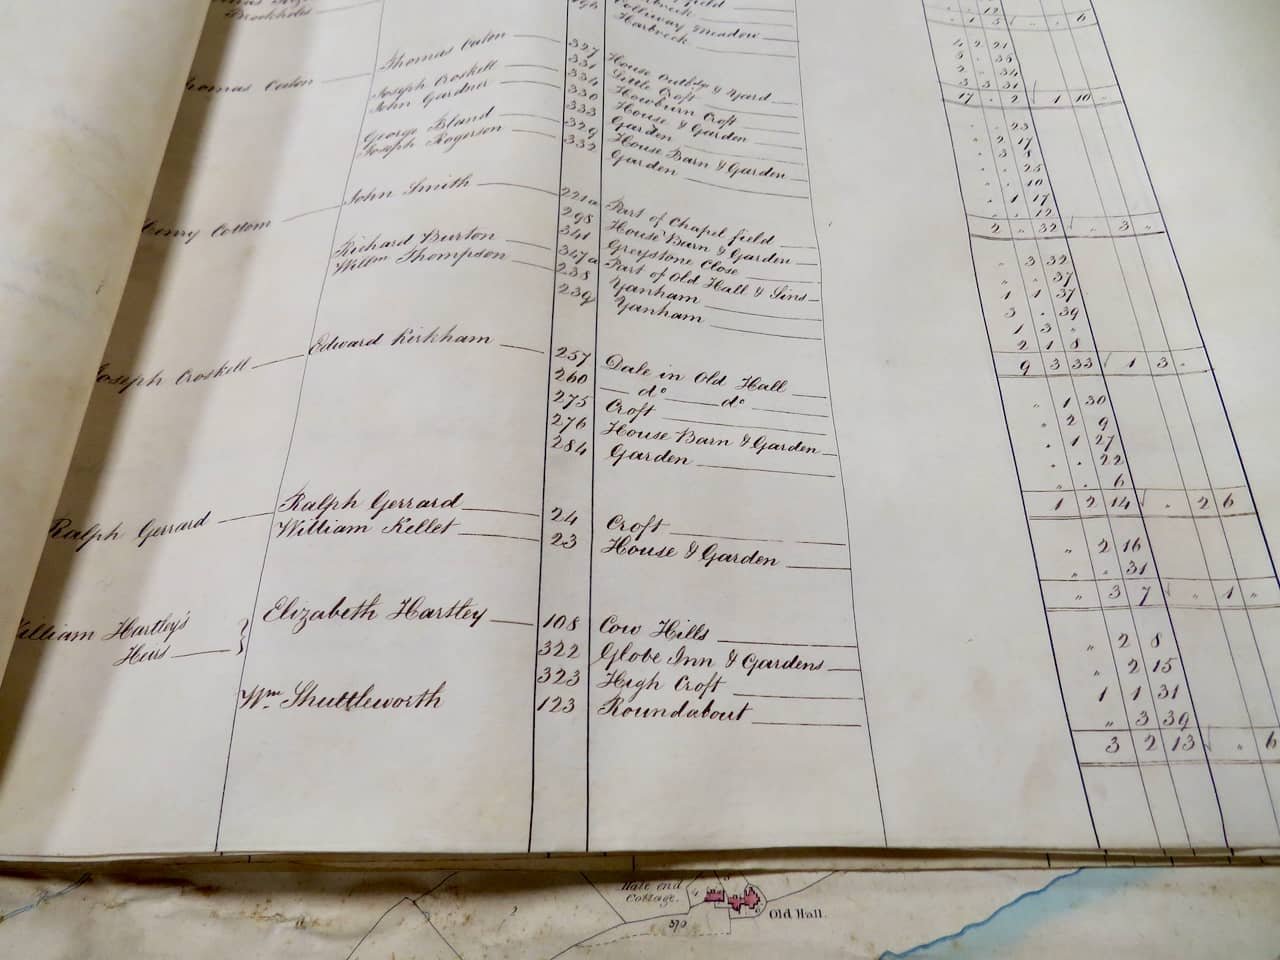 Brockholes
Harbreck
Thomas Caton Thomas Caton 327 House Outbdgs & Yard 4 2 21
Joseph Croskell 331 Little Croft
John Gardner 334 Howburn Croft
330 House & Garden
George Bland 333 Garden
Joseph Rogerson 329 House Barn & Garden
332 Garden
17 . 2 1 10 .
. . 23
. 2 17
. 3 8
. . 25
. . 10
. 1 17
. . 12
2 . 32 . 3 .
Henry Cottom John Smith 221a Part of Chapel field . 3 32
298 House Barn & Garden . . 37
Richard Burton 341 Greystone Close 1 1 37
Willm Thompson 347a Part of Old Hall & Sins 3 . 39
238 Yanham 1 3 .
239 Yanham 2 1 8
9 3 33 1 3 .
Joseph Croskell Edward Kirkham 257 Dale in Old Hall . 1 30
260 do do . 2 9
275 Croft . 1 27
276 House Barn & Garden . . 22
284 Garden . . 6
1 2 14 . 2 6
Ralph Gerrard Ralph Gerrard 24 Croft „ 2 16
William Kellet 23 House & Garden „ . 31
„ 3 7 „ 1 „
William Hartley's Elizabeth Hartley 108 Cow Hills „ 2 8
Heirs 322 Globe Inn & Gardens „ 2 15
323 High Croft 1 1 31
Wm. Shuttleworth 123 Roundabout „ 3 39
3 2 13 „ 6
Hall end
Cottage.
Old Hall.
370
2